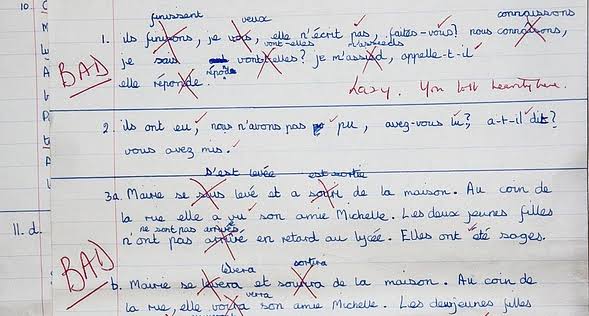 10. C
finissent veux connaissons
1. ils finissons, je vois, elle n'écrit pas, faites-vous? nous connaissons,
vont-elles m'assieds
je sais vont-elles? je m'assied, appelle-t-il
BAD
répond
elle réponde. Lazy. You lost heavily here.
2. ils ont eu, nous n'avons pas pu, avez-vous lu? a-t-il dit?
vous avez mis.
s'est levée est sortie
3a. Marie se levé et a de la maison. Au coin de
la rue elle a vu son amie Michelle. Les deux jeunes filles
ne sont pas arrivés
11. d. n'ont pas arrivé en retard au lycée. Elles ont été sages.
BAD
lèvera sortira
b. Marie se levera et de la maison. Au coin de
verra
la rue, elle voira son amie Michelle. Les deux jeunes filles